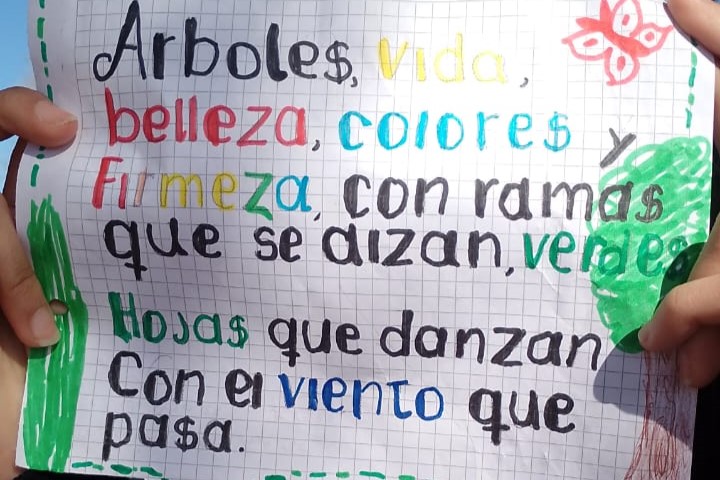 Arboles, vida,
belleza, colores y
Firmeza, con ramas
que se aizan, verdes
Hojas que danzan
Con el viento que
pasa.